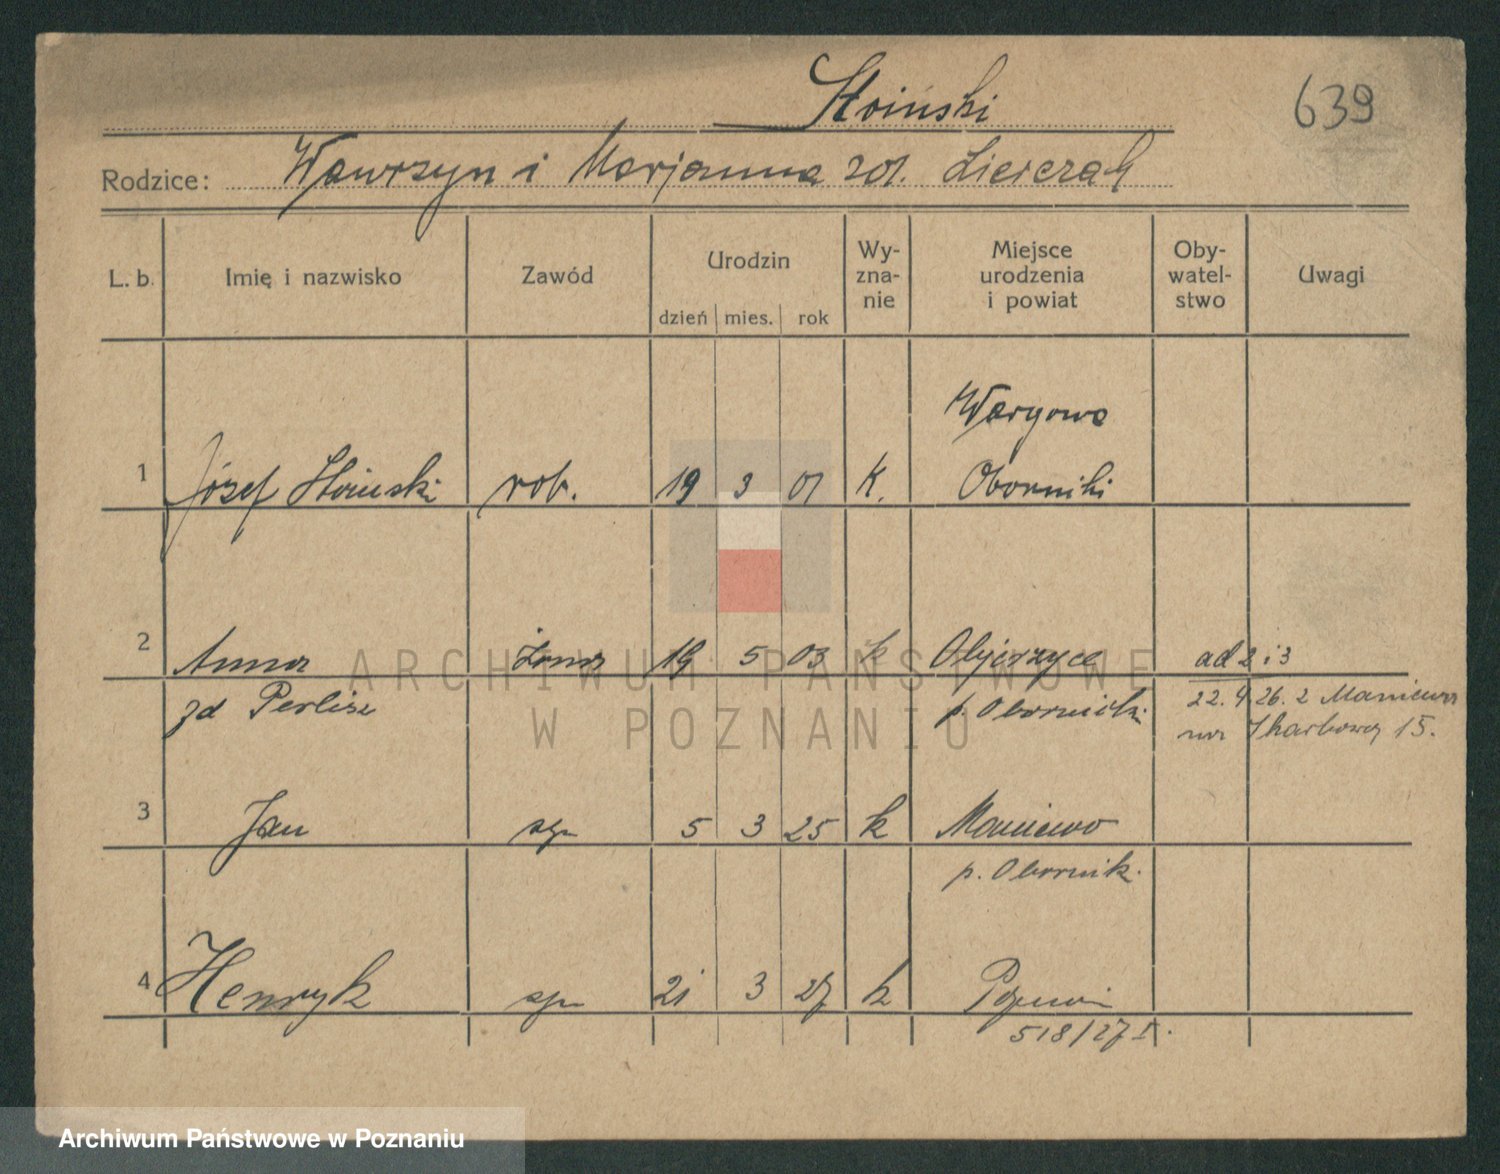 Słoiński
639
Rodzice: Wawrzyn i Marjanna zd.
L. b. Imię i nazwisko Zawód Urodzin dzień mies. rok Wy-zna-nie Miejsce urodzenia i powiat Oby-watel-stwo Uwagi
Wargowo
1 Józef Słoiński rob. 19 3 01 k. Oborniki
2 Anna żona 19 5 03 k Objezyce ad 2 i 3
zd Perlisz p. Oborniki 22. 4 26. z Maniewa
na Skarbową 15.
3 Jan syn 5 3 25 k Maniewo
p. Obornik.
4 Henryk syn 21 3 27 k Poznań
518/27 I.
ARCHIWUM PAŃSTWOWE
W POZNANIU
Archiwum Państwowe w Poznaniu